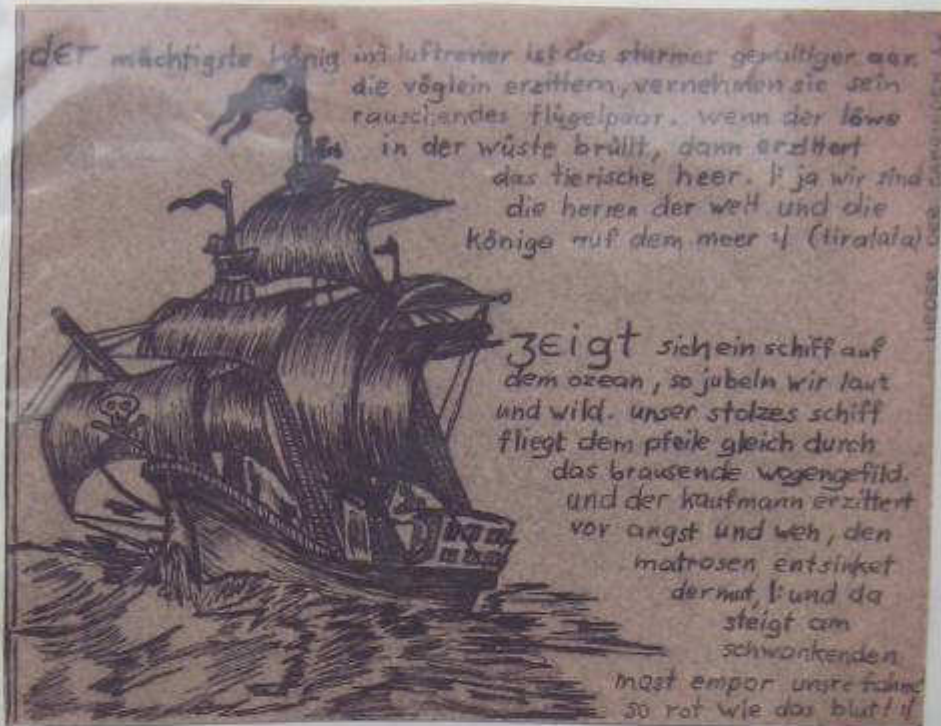 der mächtigste könig im luftrevier ist des sturmes gewaltiger aar.
die vöglein erzittern, vernehmen sie sein
rauschendes flügelpaar. wenn der löwe
in der wüste brüllt, dann erzittert
das tierische heer. |: ja wir sind
die herren der welt und die
könige auf dem meer :| (tiralala)
zeigt sich ein schiff auf
dem ozean, so jubeln wir laut
und wild. unser stolzes schiff
fliegt dem pfeile gleich durch
das brausende wogengefild.
und der kaufmann erzittert
vor angst und weh, den
matrosen entsinket
der mut, |: und da
steigt am
schwankenden
mast empor unsre fahne
so rot wie das blut! :|